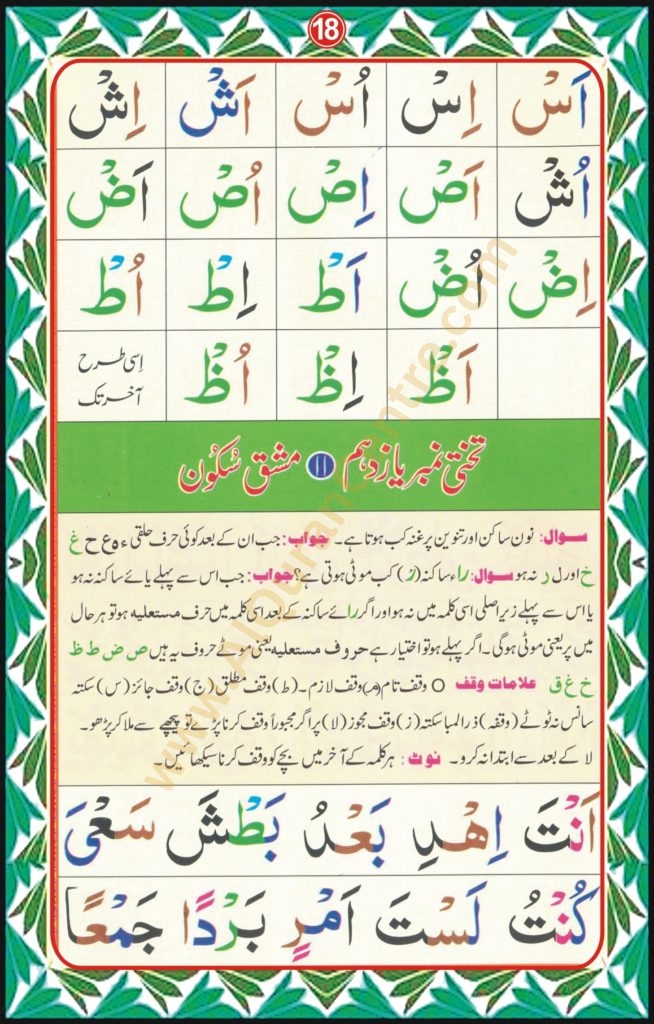 18
اَسْ اِسْ اُسْ اَشْ اِشْ
اُشْ اَصْ اِصْ اُصْ اَضْ
اِضْ اُضْ اَطْ اِطْ اُطْ
اَظْ اِظْ اُظْ اِسی طرح
آخر تک
تختی نمبر یازدہم ۱۱ مشق سُکُون
سوال: نون ساکن اور تنوین پر غنہ کب ہوتا ہے۔ جواب: جب ان کے بعد کوئی حرف حلقی ء ہ ع ح غ
خ اور ل ر نہ ہو سوال: راء ساکنہ (رْ) کب موٹی ہوتی ہے؟ جواب: جب اس سے پہلے یائے ساکنہ نہ ہو
یا اس سے پہلے زیر اصلی اسی کلمہ میں نہ ہو اور اگر رائے ساکنہ کے بعد اسی کلمہ میں حرف مستعلیہ ہو تو ہر حال
میں پر یعنی موٹی ہوگی۔ اگر پہلے ہو تو اختیار ہے حروف مستعلیہ یعنی موٹے حروف یہ ہیں ص ض ط ظ
خ غ ق علامات وقف O وقف تام (مـ) وقف لازم۔ (ط) وقف مطلق (ج) وقف جائز (س) سکتہ
سانس نہ ٹوٹے (وقفہ) ذرا لمبا سکتہ (ز) وقف مجوز (لا) پر اگر مجبوراً وقف کرنا پڑے تو پیچھے سے ملا کر پڑھو۔
لا کے بعد سے ابتدا نہ کرو۔ نوٹ: ہر کلمہ کے آخر میں بچے کو وقف کرنا سیکھائیں۔
اَنْتَ اِهْدِ بَعْدُ بَطْشَ سَعْیَ
كُنْتُ لَسْتَ اَمْرٍ بَرْدًا جَمْعًا